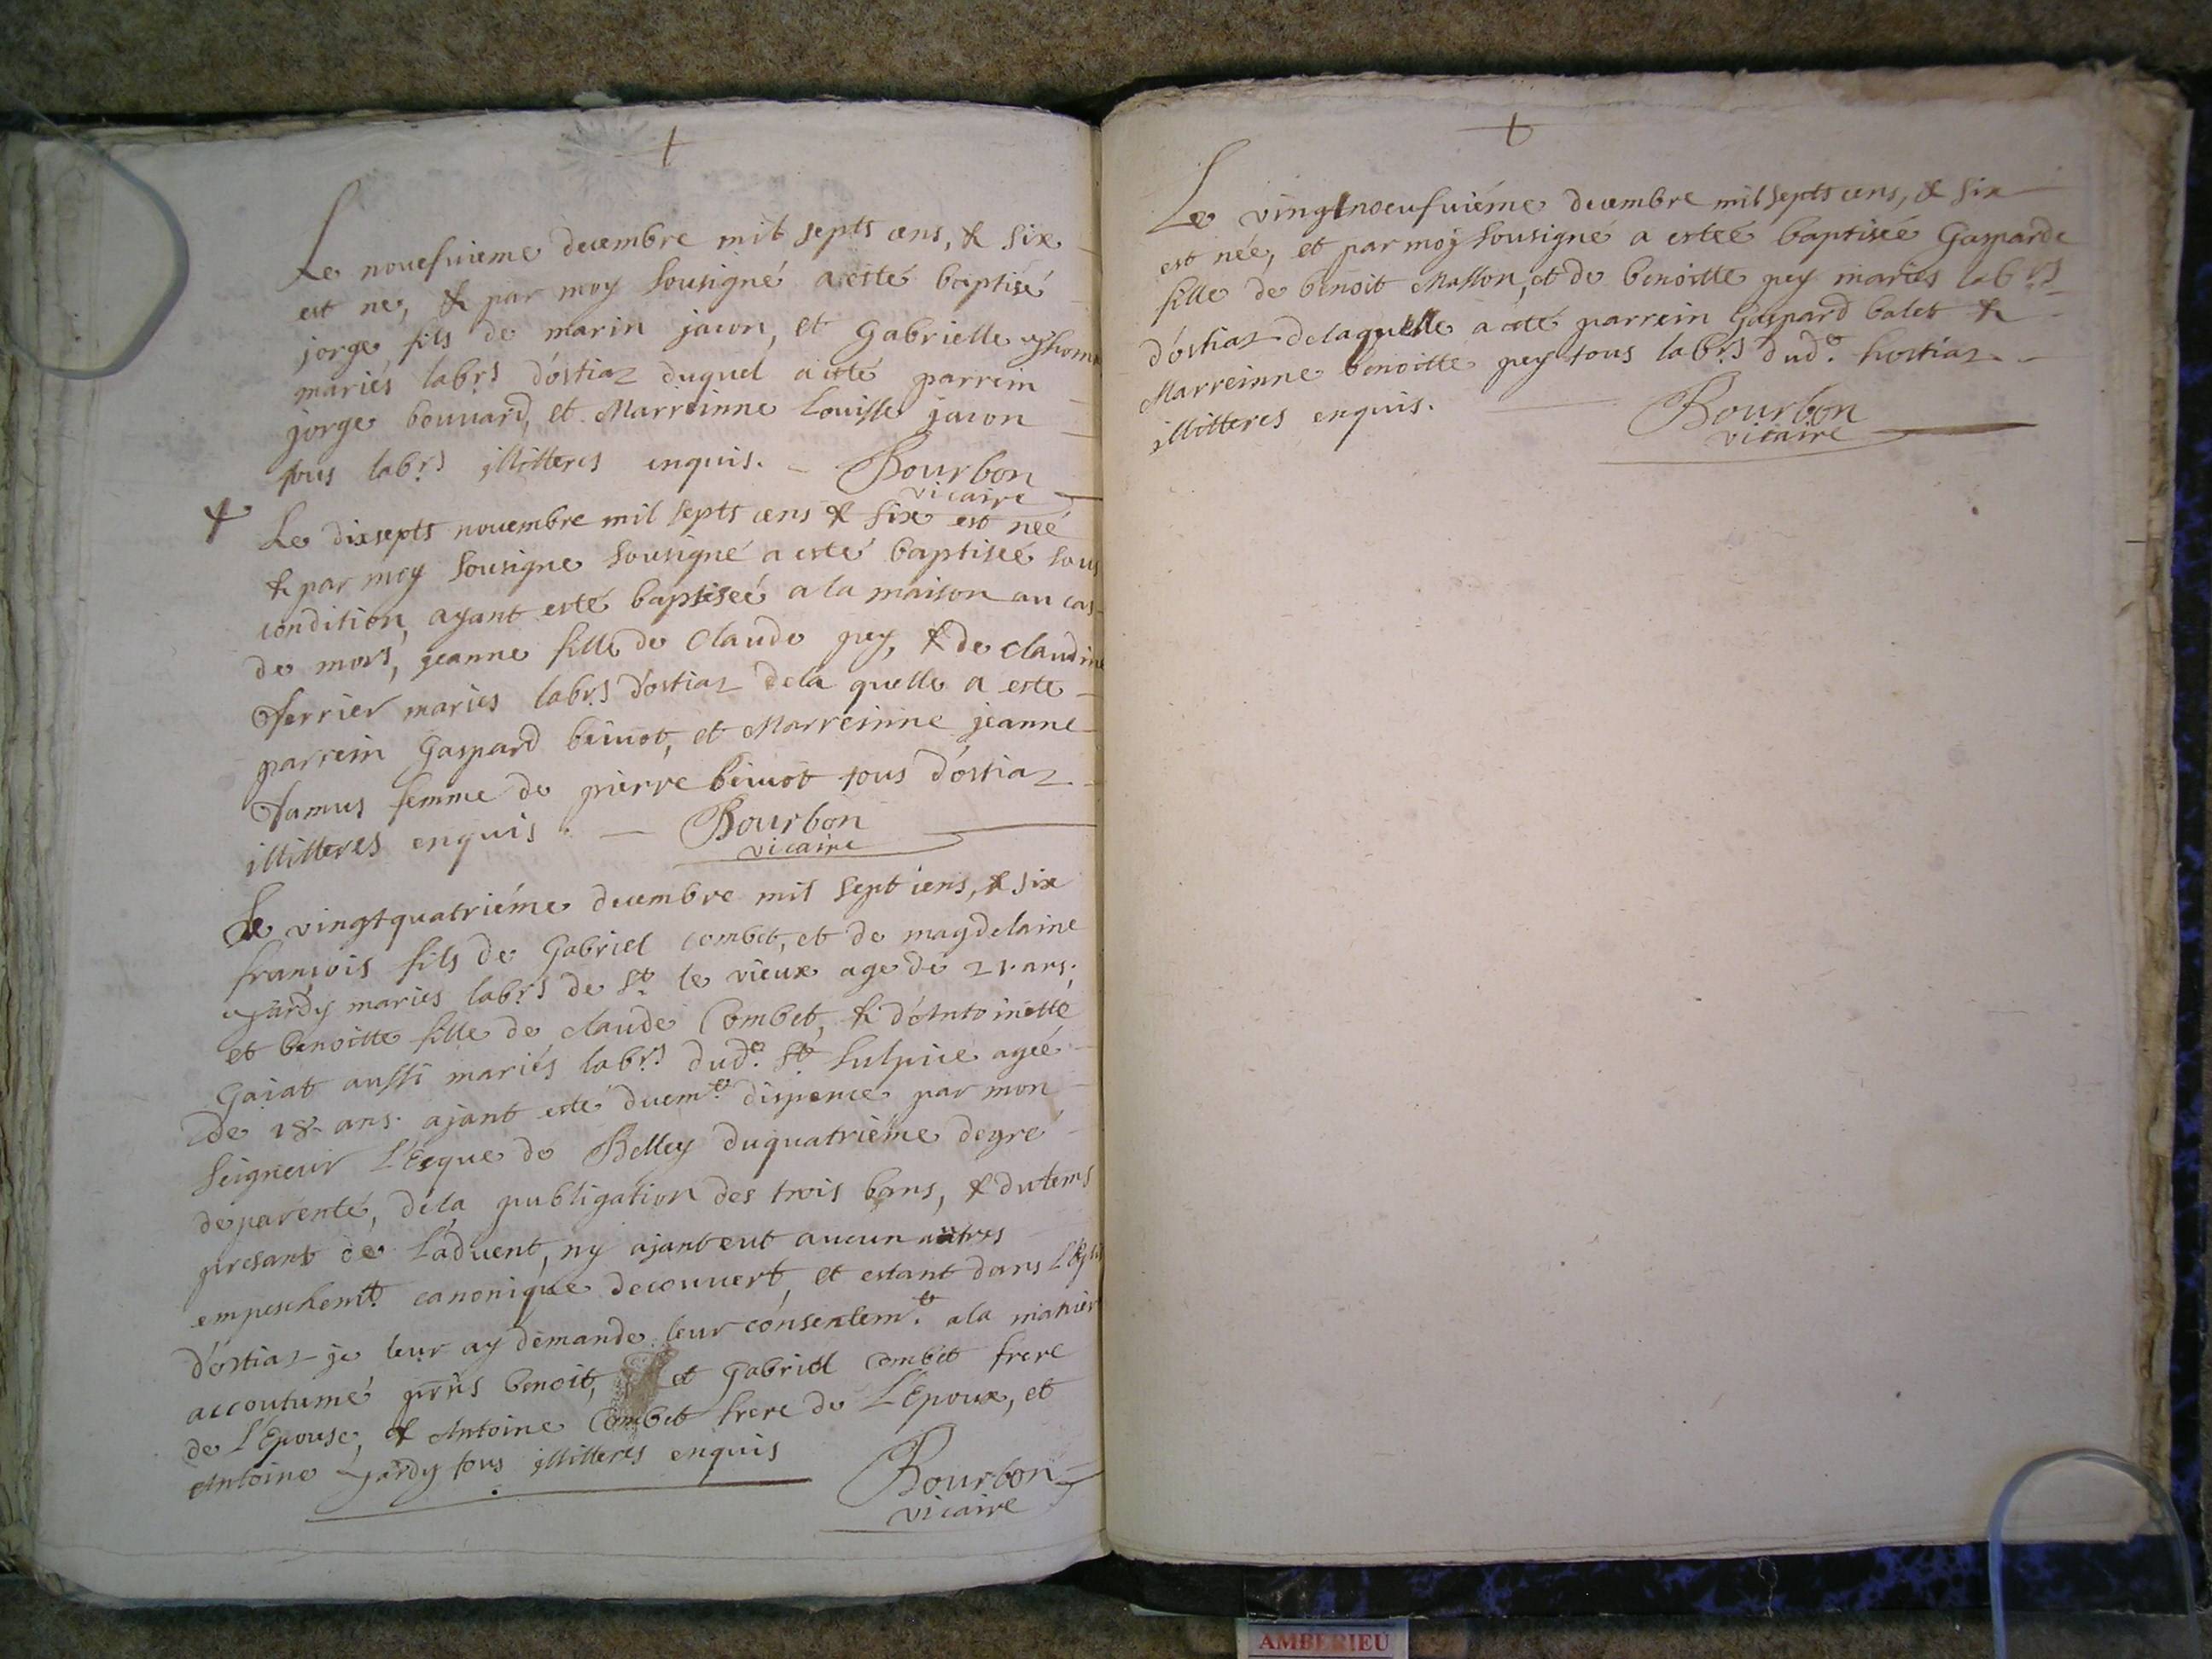 Le nouefuieme decembre mil septs cens, & six
est ne, & par moy sousigné a esté baptisé
jorge fils de marin jacon, et Gabrielle
mariés labrs d'ostiaz duquel a esté parrein
jorge bouuard, et Marreinne Louisse jacon
tous labrs illitteres enquis. Bourbon
vicaire
Le dixsepts nouembre mil septs cens & six est née
& par moy sousigne sousigné a esté baptiseé sous
condition, ayant esté baptiseé a la maison au cas
de mort, jeanne fille de Claude pey, & de claudine
ferrier maries labrs d'ostiaz dela quelle a este
parrein Gaspard et Marreinne jeanne
famus femme de pierre tous d'ostiaz
illitteres enquis. Bourbon
vicaire
Le vingtquatriéme decembre mil sept cens, & six
françois fils de Gabriel combet, et de magdelaine
jardy maries labrs de St le vieux age de 21. ans.
et benoitte fille de claude Combet, & d'Antoinette
Gaiat aussi mariés labrs dude St Sulpice ageé
de 18. ans. ajant esté duemt dispence par mon
seigneur L'Eeque de Belley du quatriéme degré
de parenté, de la publigation des trois bans, & du tems
presant de L'aduent, ny ajant eut aucun autres
empeschemt canonique decouuert, et estant dans L'Eglise
d'ostiaz je leur ay demande leur consentemt a la manier
accoutumé prns benoit, et Gabriel Combet frere
de L'Epouse, & Antoine Combet frere de L'Epoux, et
Antoine jardy tous illitteres enquis
Bourbon
vicaire
Le vingtnoeufuiéme decembre mil septs cens, & six
est née, et par moy sousigné a esteé baptiseé Gasparde
fille de benoit Masson, et de benoitte pey maries labrs
d'ostiaz delaquelle a esté parrein Gaspard balet &
Marreinne benoitte pey tous labrs dude hostiaz
illitteres enquis.
Bourbon
vicaire
AMBERIEU